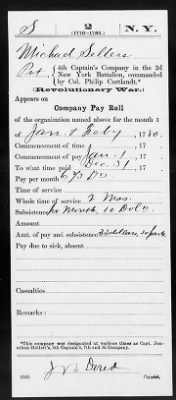 S 2 N.Y.
(1776-1783.)
Michael Sellers
Pvt., 4th Captain's Company in the 2d
New York Battalion, commanded
by Col. Philip Cortlandt.*
(Revolutionary War.)
Appears on
Company Pay Roll
of the organization named above for the month s
of Jan & Feby, 1780.
Commencement of time , 17 .
Commencement of pay Jan. 1, 17 .
To what time paid Dec 31, 17 .
Pay per month 6 2/3 Ds
Time of service
Whole time of service 2 Mos.
Subsistence per Month, 10 Dols
Amount
Amt. of pay and subsistence 33 dollars, 30 parts
Pay due to sick, absent
Casualties
Remarks:
*This company was designated at various times as Capt.
7th and 3d Company.
Copyist.